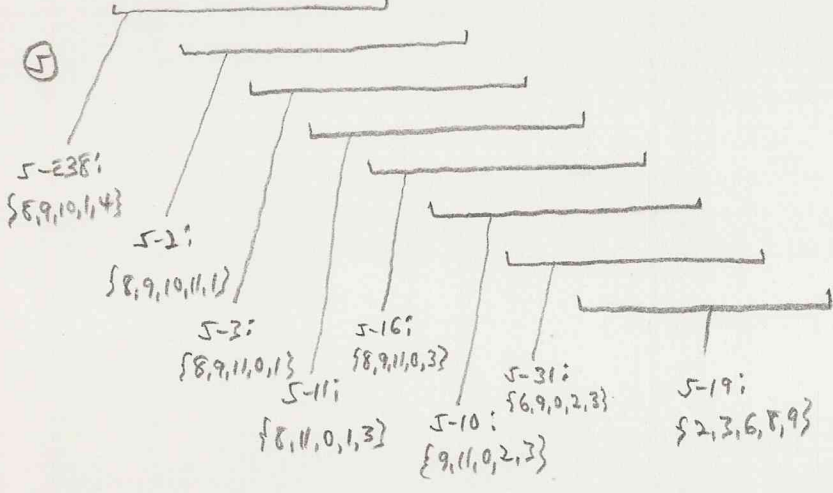 5
5-z38:
{8,9,10,1,4}
5-2:
{8,9,10,11,1}
5-3:
{8,9,11,0,1}
5-11:
{8,11,0,1,3}
5-16:
{8,9,11,0,3}
5-10:
{9,11,0,2,3}
5-31:
{6,9,0,2,3}
5-19:
{2,3,6,8,9}